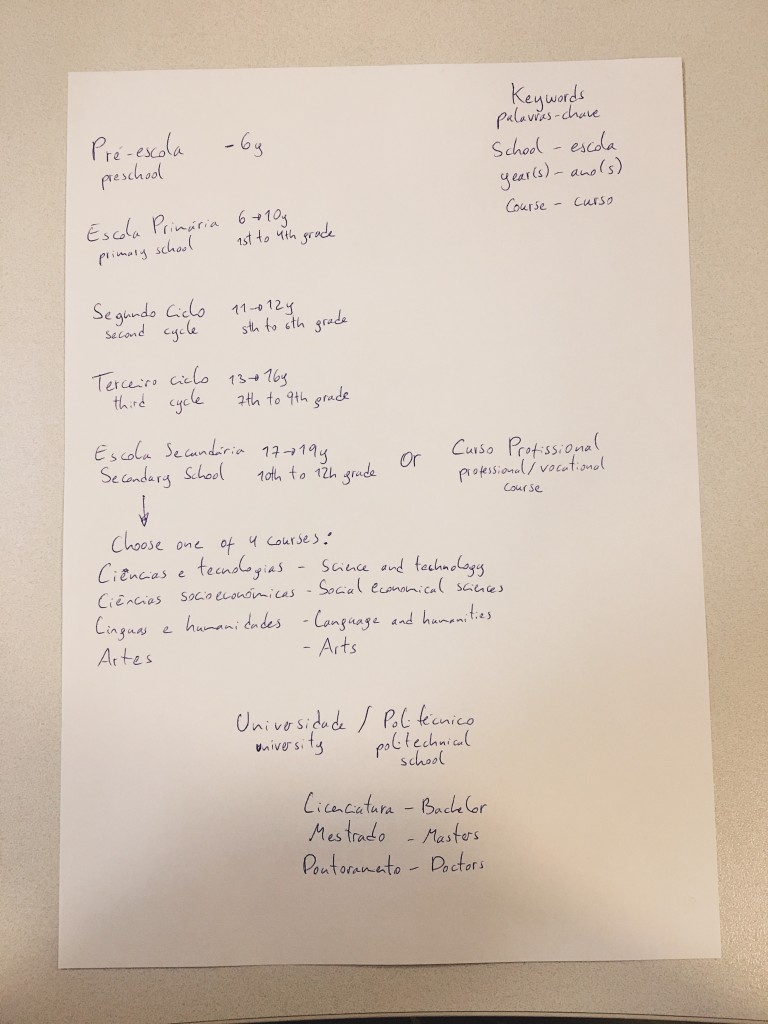 Keywords
palavras-chave
School - escola
year(s) - ano(s)
Course - curso
Pré-escola - 6y
preschool
Escola Primária 6→10y
primary school 1st to 4th grade
Segundo Ciclo 11→12y
second cycle 5th to 6th grade
Terceiro ciclo 13→16y
third cycle 7th to 9th grade
Escola Secundária 17→19y
Secondary School 10th to 12h grade
Or
Curso Profissional
professional/vocational
course
↓
Choose one of 4 courses:
Ciências e tecnologias - Science and technology
Ciências socioeconómicas - Social economical sciences
Línguas e humanidades - Language and humanities
Artes - Arts
Universidade / Politécnico
university politechnical
school
Licenciatura - Bachelor
Mestrado - Masters
Doutoramento - Doctors